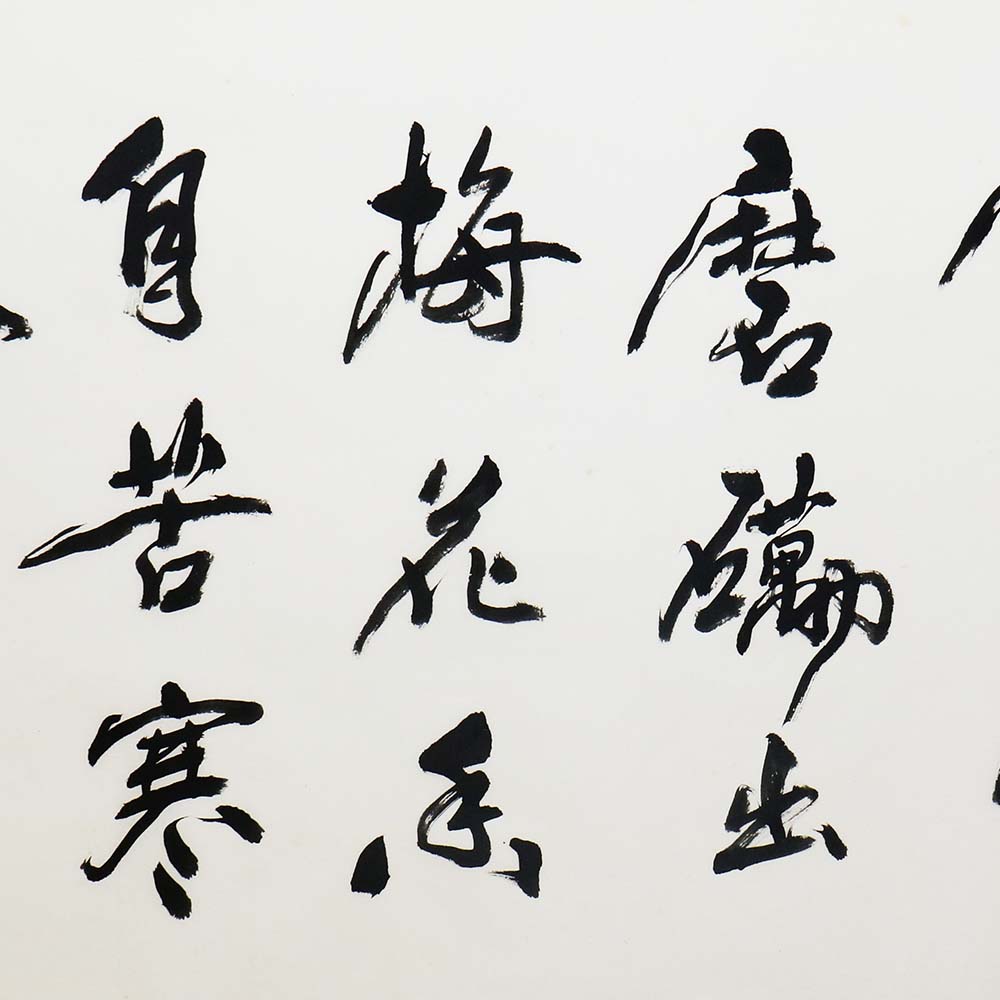 磨礪出
梅花香
自苦寒